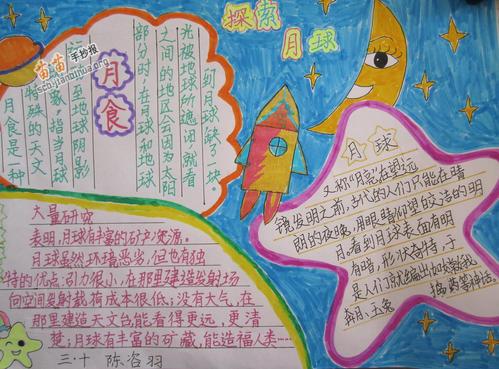 探索
月球
苗苗
手抄报
月食
月食是一种
特殊的天文
象,指当月球
至地球阴影
部分时,在月球和地球
之间的地区会因为太阳
光被地球所遮闭就看
到月球缺了一块。
月球
又称"月亮"在望远
镜发明之前,古代的人们只能在晴
阴的夜晚,用眼睛仰望皎洁的明
月,看到月球表面有明
有暗,形状奇特,于
是人们就编出如嫦娥
奔月、玉兔
捣药等神话。
大量研究
表明,月球有丰富的矿产资源。
月球虽然环境恶劣,但也有独
特的优点:引力很小,在那里建造发射场
向空间发射载有成本很低;没有大气,在
那里建造天文台能看得更远,更清
楚;月球有丰富的矿藏,能造福人类……
三·十 陈咨羽